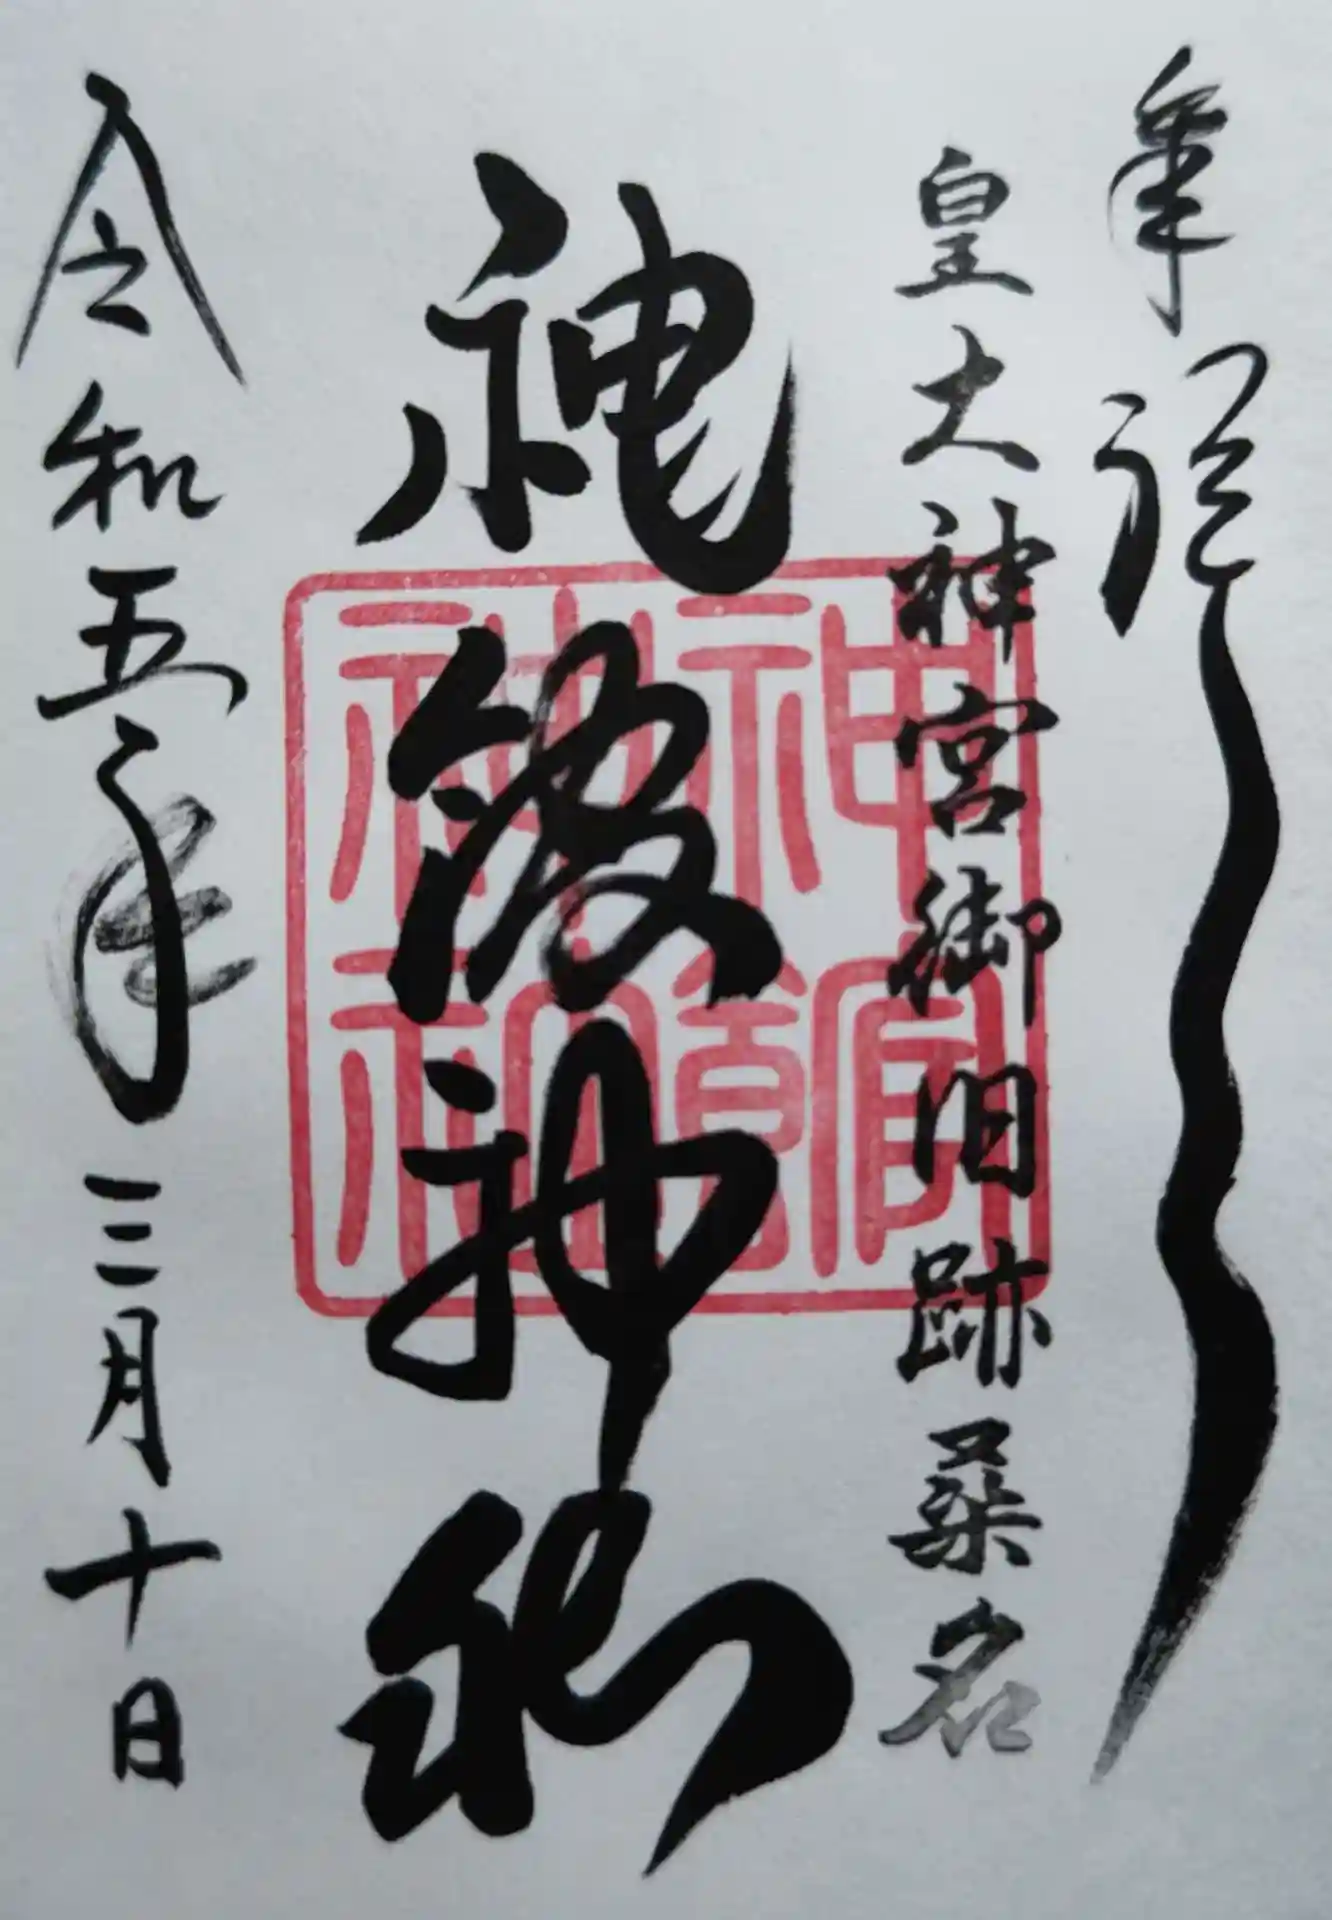 奉拝
皇大神宮御旧跡桑名
神館神社
神館
神社
令和五年三月十日